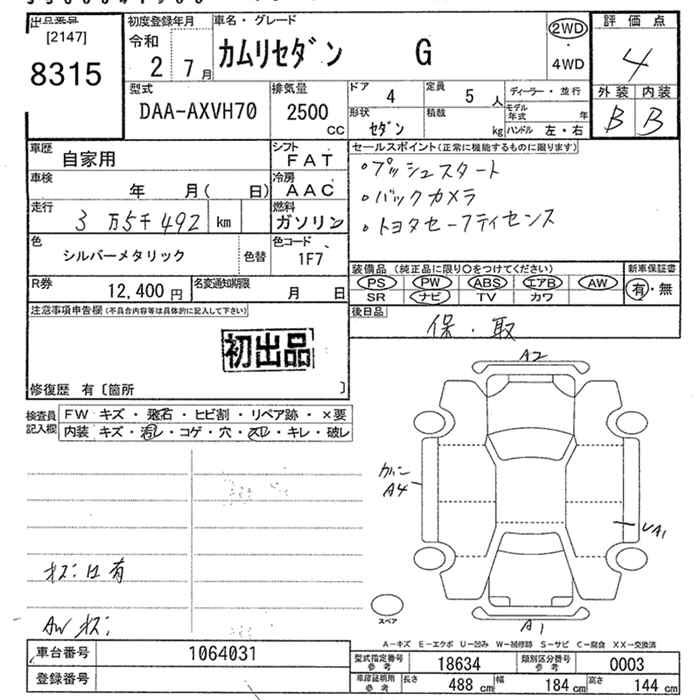 出品番号
[2147]
8315
初度登録年月
令和
2 7月
車名・グレード
カムリセダン G
2WD
・
4WD
評価点
4
外装 内装
B B
型式
DAA-AXVH70
排気量
2500
CC
ドア
4
定員
5 人
ディーラー・並行
形状
セダン
積載
kg
モデル年式 年
ハンドル 左・右
車歴
自家用
シフト
FAT
車検
年 月( 日)
冷房
AAC
走行
3万5千492 km
燃料
ガソリン
色
シルバーメタリック
色替
色コード
1F7
R券
12,400円
名変通知期限
月 日
セールスポイント(正常に機能するものに限ります)
・プッシュスタート
・バックカメラ
・トヨタセーフティセンス
装備品 (純正品に限り○をつけてください)
PS PW ABS エアB AW
SR ナビ TV カワ
新車保証書
有・無
後日品
保・取
注意事項申告欄(不具合内容等は具体的に記入して下さい)
初出品
修復歴 有〔箇所 〕
検査員記入欄
FW キズ・飛石・ヒビ割・リペア跡・×要
内装 キズ・汚レ・コゲ・穴・スレ・キレ・破レ
A2
A4
A1
スペア
AW キズ
A-キズ E-エクボ U-凹み W-補修跡 S-サビ C-腐食 XX-交換済
車台番号
1064031
登録番号
型式指定番号
参考
18634
類別区分番号
参考
0003
車庫証明用
参考
長さ 488 cm 幅 184 cm 高さ 144 cm